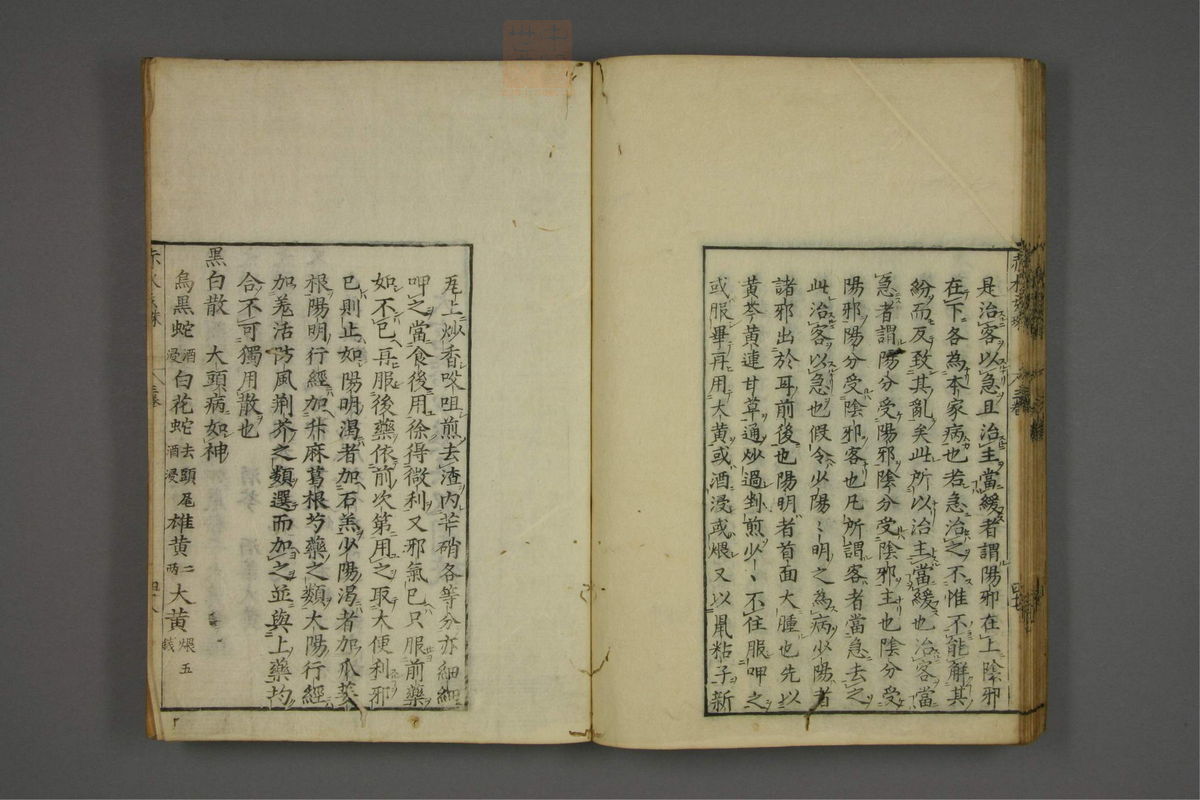 是治客以急且治主當緩者謂陽邪在上陰邪
在下各為本家病也若急治之不惟不能解其
紛而反致其亂矣此所以治主當緩也治客當
急者謂陽分受陽邪陰分受陰邪主也陰分受
陽邪陽分受陰邪客也凡所謂客者當急去之
此治客以急也假令少陽〻明之為病少陽者
諸邪出於耳前後也陽明者首面大腫也先以
黃芩黃連甘草通炒過剉煎少〻不住服呷之
或服畢再用大黃或酒浸或煨又以鼠粘子新
瓦上炒香㕮咀煎去渣內芒硝各等分亦細細
呷之當食後用徐得微利又邪氣已只服前藥
如不已再服後藥依前次第用之取大便利邪
已則止如陽明渴者加石羔少陽渴者加瓜蔞
根陽明行經加升麻葛根芍藥之類太陽行經
加羗活防風荆芥之類選而加之並與上藥均
合不可獨用散也
黑白散　大頭病如神
烏黑蛇酒浸白花蛇去頭尾酒浸雄黃二兩大黃煨五錢